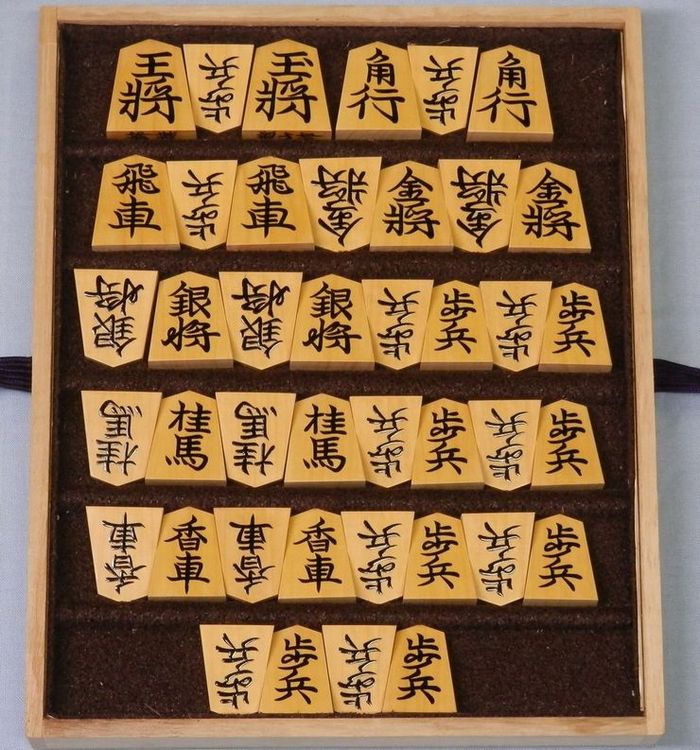 王將 歩兵 玉將 角行 歩兵 角行
飛車 歩兵 飛車 金將 金將 金將 金將
銀将 銀将 銀将 銀将 歩兵 歩兵 歩兵 歩兵
桂馬 桂馬 桂馬 桂馬 歩兵 歩兵 歩兵 歩兵
香車 香車 香車 香車 歩兵 歩兵 歩兵 歩兵
歩兵 歩兵 歩兵 歩兵